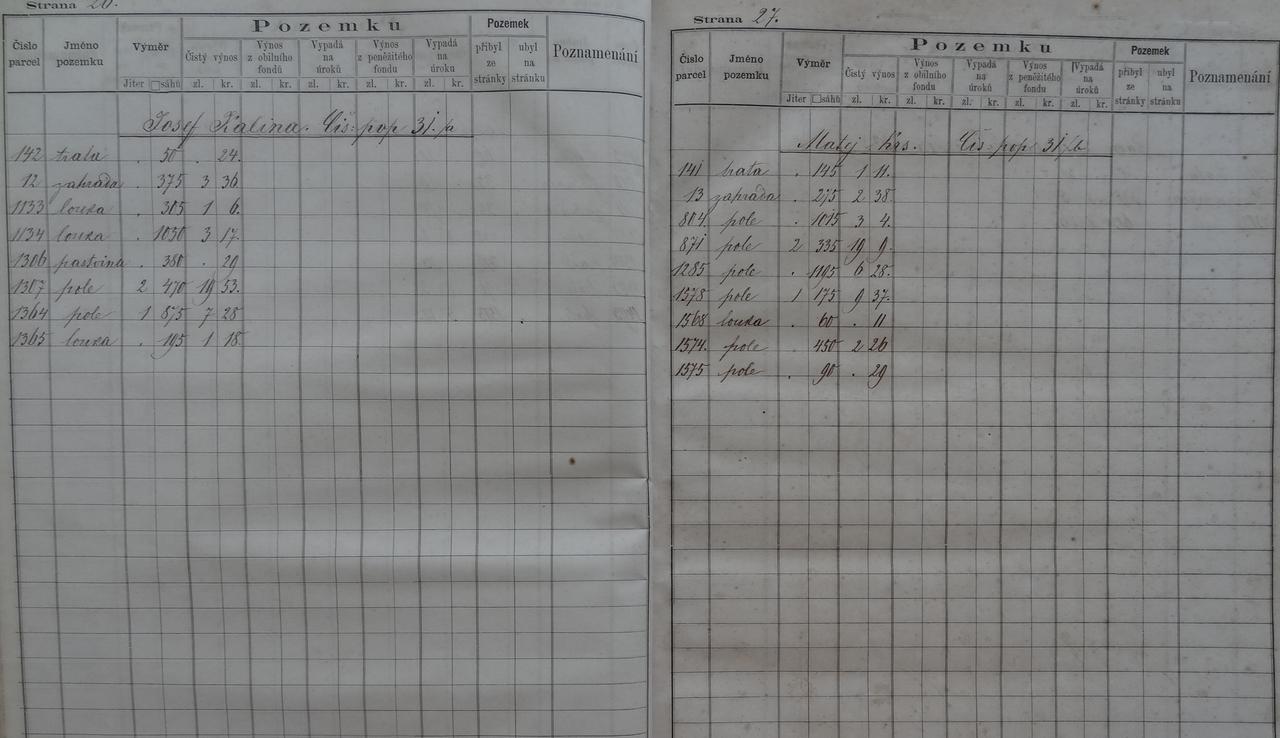 Strana 26.
Pozemku
Pozemek
Číslo parcel
Jméno pozemku
Výměr
Čistý výnos
Výnos z obilního fondů
Vypadá na úroků
Výnos z peněžitého fondu
Vypadá na úroku
přibyl ze stránky
ubyl na stránku
Poznamenání
Jiter □sáhů zl. kr. zl. kr. zl. kr. zl. kr. zl. kr.
Josef Kalina. Čís: pop 31./a
142 trata . 50 . 24.
12 zahrada . 375 3 36
1133 louka . 305 1 6.
1134 louka . 1030 3 17.
1306 pastvina . 380 . 29
1307 pole 2 470 19 53.
1364 pole 1 875 7 28
1365 louka . 195 1 18.
Strana 27.
Pozemku
Pozemek
Číslo parcel
Jméno pozemku
Výměr
Čistý výnos
Výnos z obilního fondu
Vypadá na úroků
Výnos z peněžitého fondu
Vypadá na úroků
přibyl ze stránky
ubyl na stránku
Poznamenání
Jiter □sáhů zl. kr. zl. kr. zl. kr. zl. kr. zl. kr.
Matěj Krs. Čís: pop 31/b
141 trata . 145 1 11.
13 zahrada . 275 2 38.
804 pole . 1015 3 4.
871 pole 2 335 19 9.
1285 pole . 1195 6 28.
1578 pole 1 175 9 37.
1568 louka . 60 . 11
1574. pole . 450 2 26
1575 pole . 90 . 29